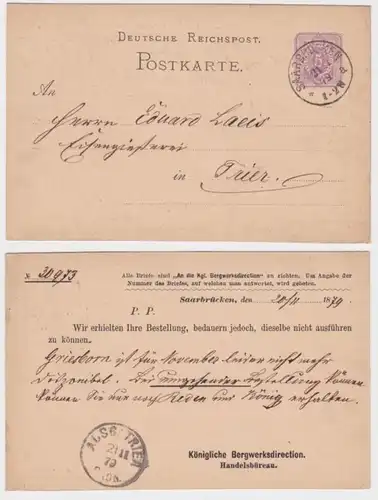 DEUTSCHE REICHSPOST.
POSTKARTE.
An
Herrn Eduard Laeis
Eisengießerei
in Trier.
№ 30973
Alle Briefe sind „An die Kgl. Bergwerksdirection" zu richten. Um Angabe der
Nummer des Briefes, auf welchen man antwortet, wird gebeten.
Saarbrücken, den 20/11 1879
P. P.
Wir erhielten Ihre Bestellung, bedauern jedoch, dieselbe nicht ausführen
zu können.
Griesborn ist für November leider nicht mehr
disponibel. Bei umgehender Bestellung können
können Sie nur noch Reden und König erhalten.
AUSG. TRIER
21 11
79
Königliche Bergwerksdirection.
Handelsbüreau.